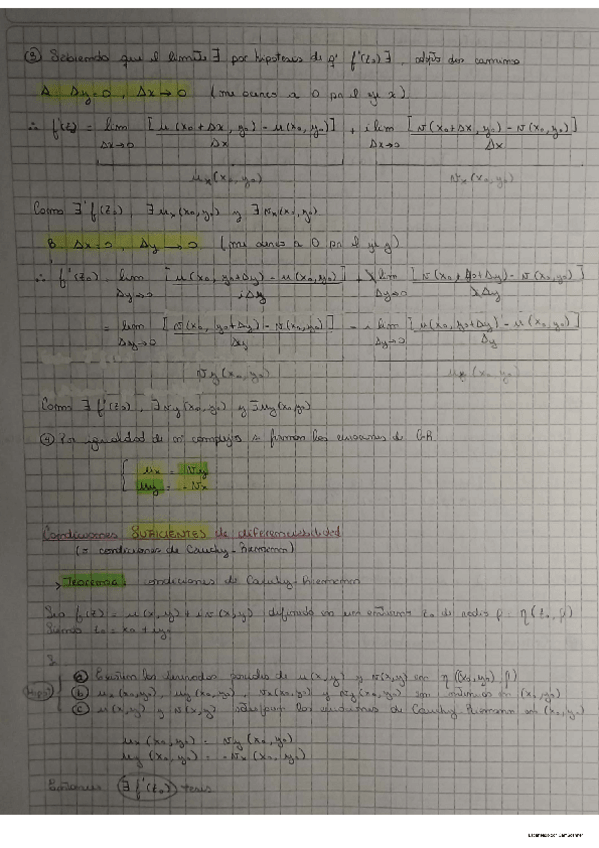 ③ Sabiendo que el límite ∃ por hipótesis de q' f'(z₀) ∃, elijo dos caminos
A. Δy=0, Δx→0 (me acerco a 0 por el eje x)
∴ f'(z₀) = lim Δx→0 [u(x₀+Δx, y₀) - u(x₀, y₀)] / Δx + i lim Δx→0 [v(x₀+Δx, y₀) - v(x₀, y₀)] / Δx
uₓ(x₀, y₀) vₓ(x₀, y₀)
Como ∃ f'(z₀), ∃ uₓ(x₀, y₀) y ∃ vₓ(x₀, y₀)
B. Δx=0, Δy→0 (me acerco a 0 por el eje y)
∴ f'(z₀) lim Δy→0 [u(x₀, y₀+Δy) - u(x₀, y₀)] / iΔy + i lim Δy→0 [v(x₀, y₀+Δy) - v(x₀, y₀)] / iΔy
= lim Δy→0 [v(x₀, y₀+Δy) - v(x₀, y₀)] / Δy - i lim Δy→0 [u(x₀, y₀+Δy) - u(x₀, y₀)] / Δy
v_y(x₀, y₀) (x₀, y₀)
Como ∃ f'(z₀), ∃ v_y(x₀, y₀) y ∃ u_y(x₀, y₀)
④ Por igualdad de nº complejos se forman las ecuaciones de C-R
uₓ = v_y
u_y = -vₓ
Condiciones SUFICIENTES de diferenciabilidad
(= condiciones de Cauchy-Riemann)
→ Teorema: condiciones de Cauchy-Riemann
Sea f(z) = u(x, y) + i v(x, y) definida en un entorno z₀ de radio ρ η(z₀, ρ)
Siendo z₀ = x₀ + iy₀
Si
ⓐ Existen las derivadas parciales de u(x, y) y v(x, y) en η((x₀, y₀), ρ)
ⓑ uₓ(x₀, y₀), u_y(x₀, y₀), vₓ(x₀, y₀) y v_y(x₀, y₀) son continuas en (x₀, y₀)
ⓒ u(x, y) y v(x, y) satisfacen las ecuaciones de Cauchy-Riemann en (x₀, y₀)
uₓ(x₀, y₀) = v_y(x₀, y₀)
u_y(x₀, y₀) = -vₓ(x₀, y₀)
Entonces ∃ f'(z₀) tesis